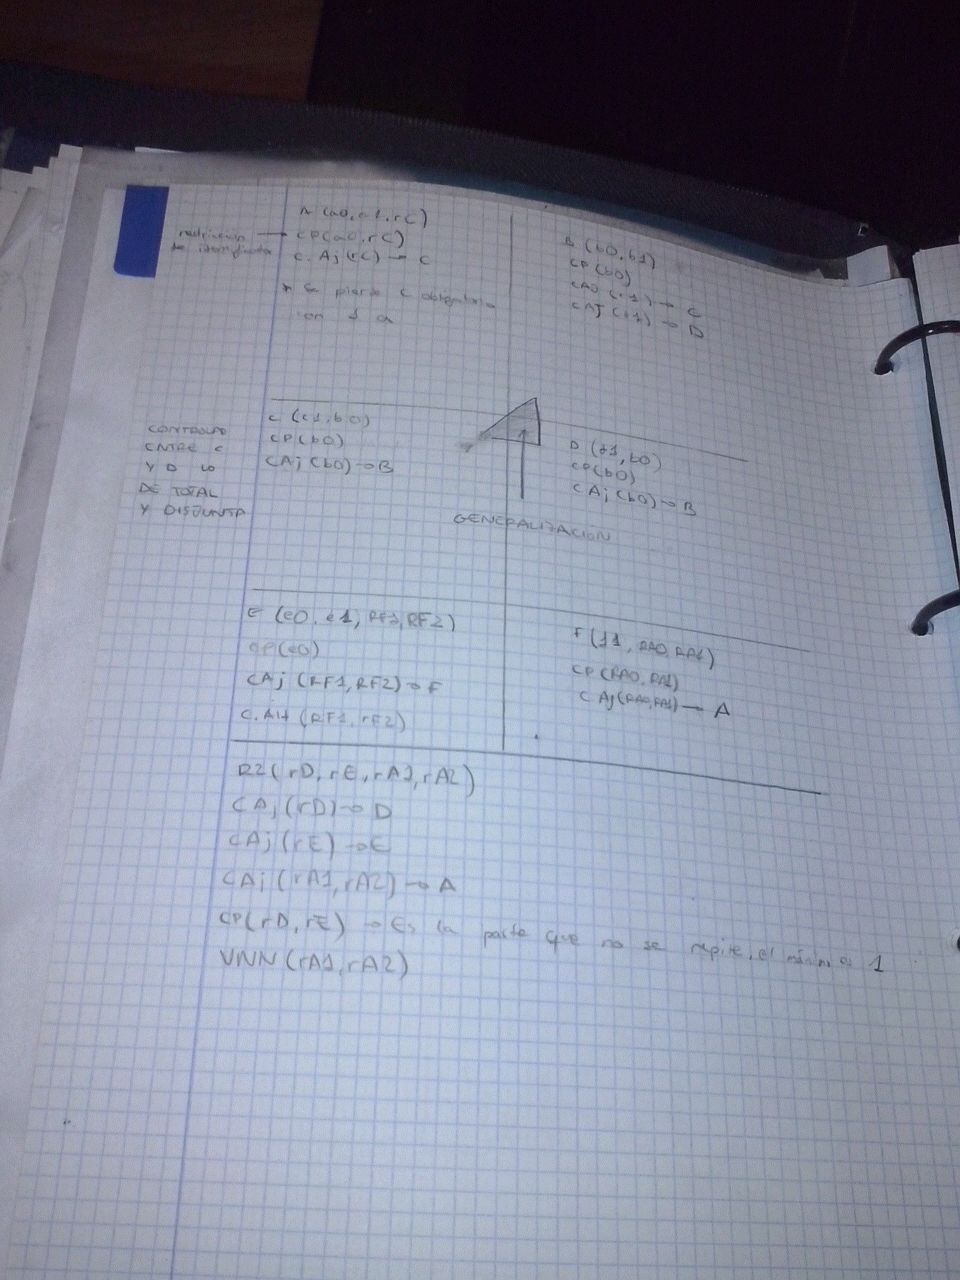 A (a0, a1, rC)
restriccion → CP(a0, rC)
de identificada C.Aj(rC) → C
* Se pierde C obligatorio
con 1 a
B (b0, b1)
CP(b0)
→ C
→ D
CONTROLAD
ENTRE C
Y D LO
DE TOTAL
Y DISJUNTA
C (c1, b0)
CP(b0)
CAj(b0) → B
D (d1, b0)
CP(b0)
CAj(b0) → B
GENERALIZACION
E (e0, e1, RF1, RF2)
CP(e0)
CAj (RF1, RF2) → F
C.Alt (RF1, rF2)
F (f1, RA0, RA1)
CP(RA0, RA1)
CAj(RA0, RA1) → A
R2(rD, rE, rA1, rA2)
CAj(rD) → D
CAj(rE) → E
CAj(rA1, rA2) → A
CP(rD, rE) → Es la parte que no se repite, el es 1
VNN(rA1, rA2)